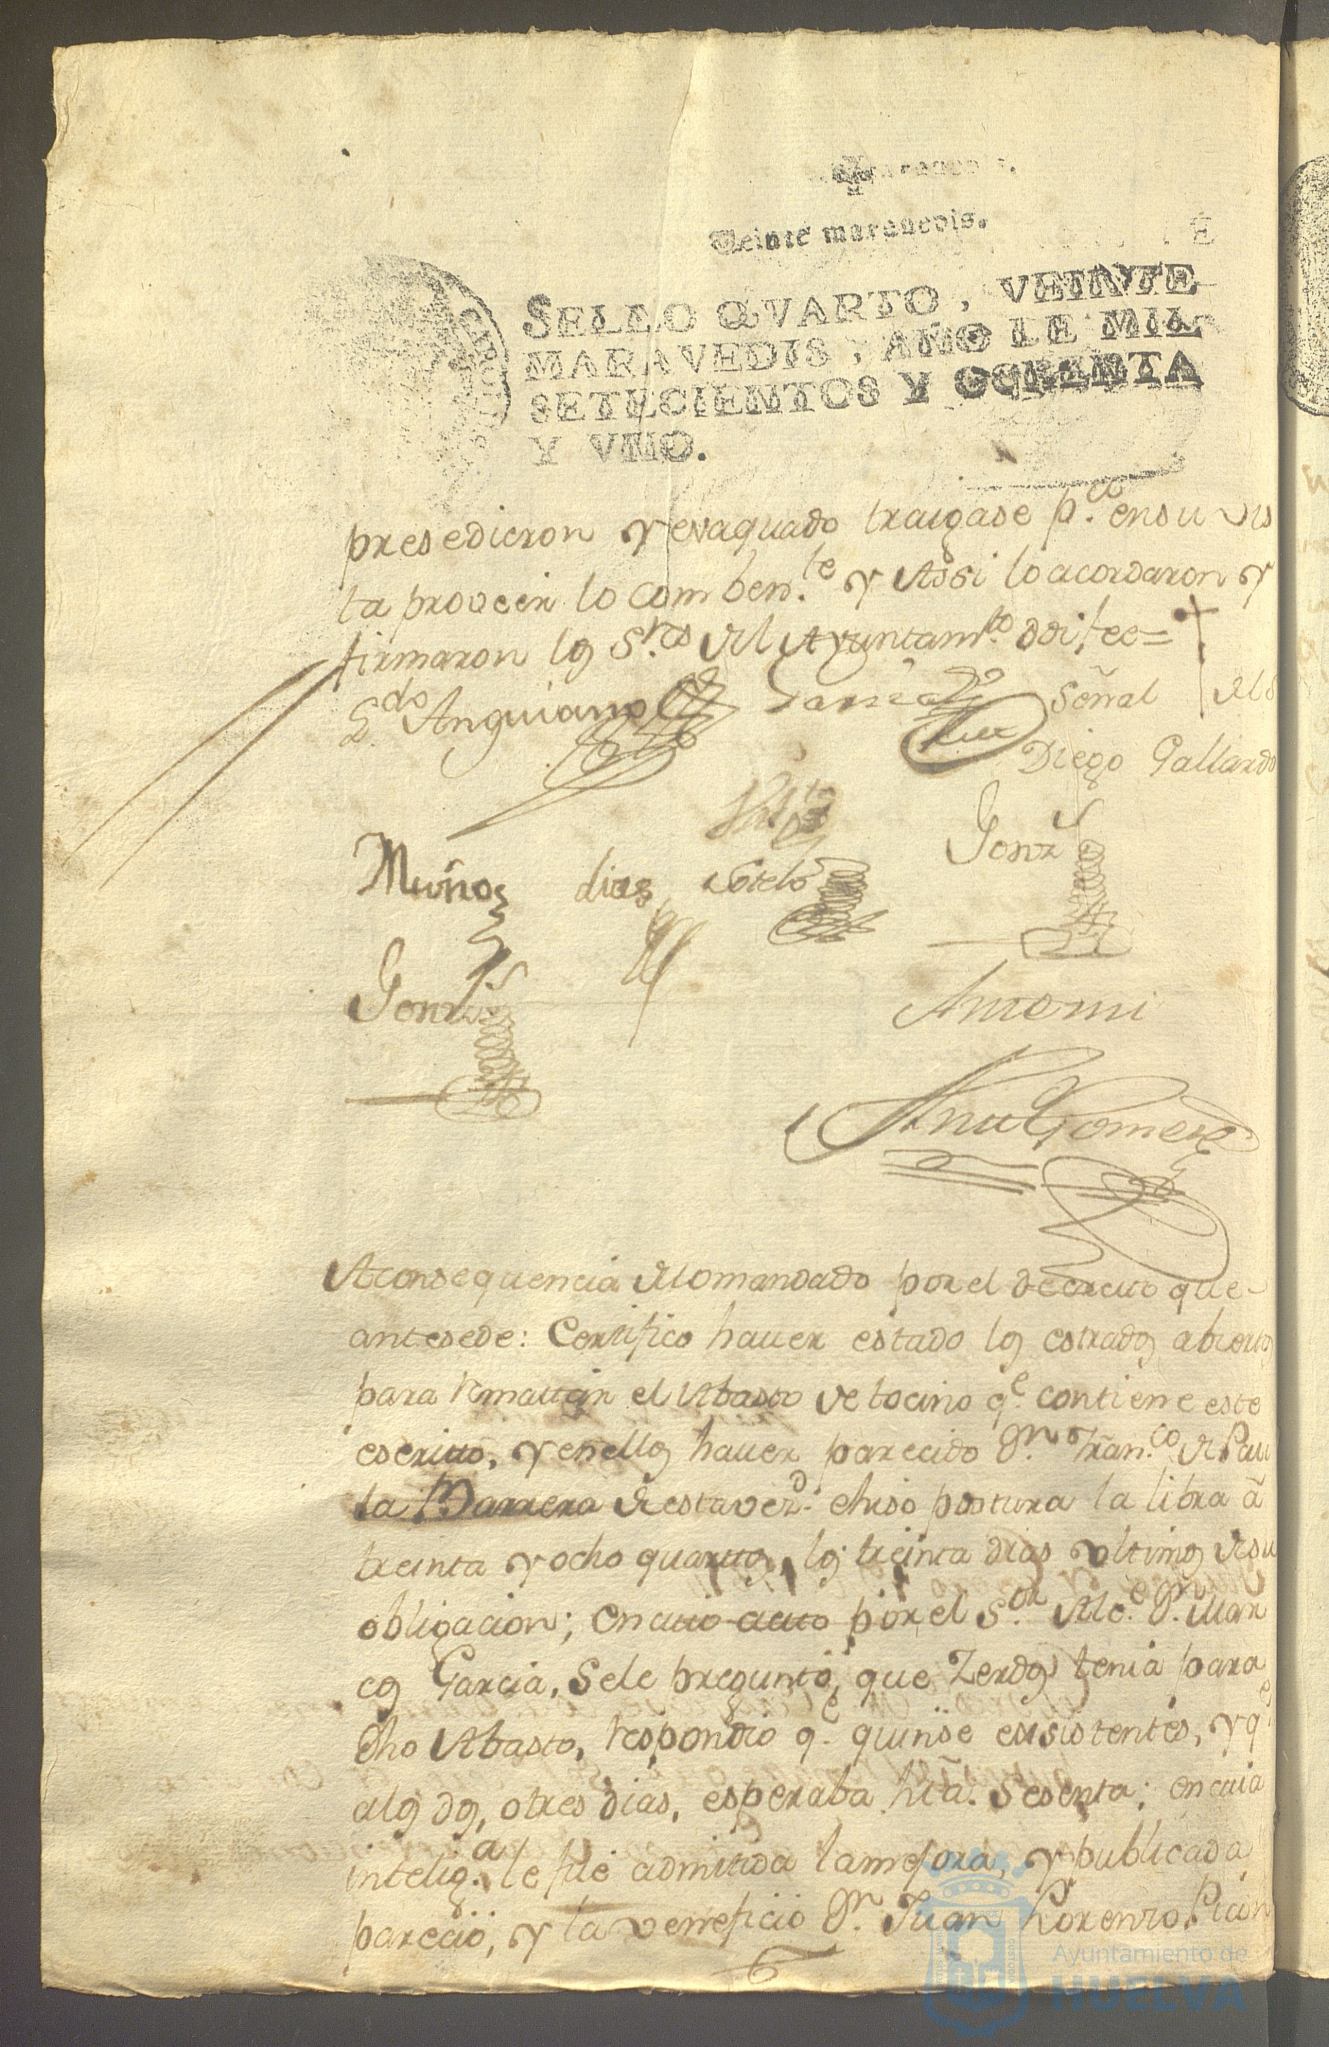 Veinte maravedis.
SELLO QVARTO, VEINTE
MARAVEDIS, AÑO DE MIL
SETECIENTOS Y OCHENTA
Y VNO.
presedieron y evaquado traigase p.co en su vis
ta proveer lo comben.te y Assi lo acordaron y
firmaron los S.res del Ayuntam.to doi fee=
L.do Anguiano Garcia Señal del S
Diego Gallardo
Muños dias Sotelo Gonz
Gonz Antemi
Gomez
A consequencia de lo mandado por el decreto que-
antesede: Certifico haver estado los estrados abiertos
para rematar el Abasto de tocino q.e contiene este
escrito, y en ellos haver parecido D.n Fran.co de Pau
la Barrera de esta vez.d e hiso postura la libra â
treinta y ocho quartos, los treinta dias ultimos de su
obligacion; en cuio acto por el S.or Alc.e D.n Mar
cos Garcia, se le preguntó, que Zerdos tenia para
dho Abasto, respondio q.e quinse exsistentes, y q.e
a los dos, o tres dias, esperaba hta. sesenta; en cuia
intelig.a le fué admitida la mejora, y publicada
pareció, y la veneficio D.n Juan Lorenzo Picon
Ayuntamiento de
HUELVA